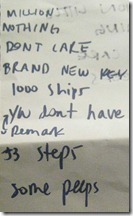 MILLION
NOTHING
DONT CARE
BRAND NEW
1000 ships
you dont have
remark
33 steps
some peeps